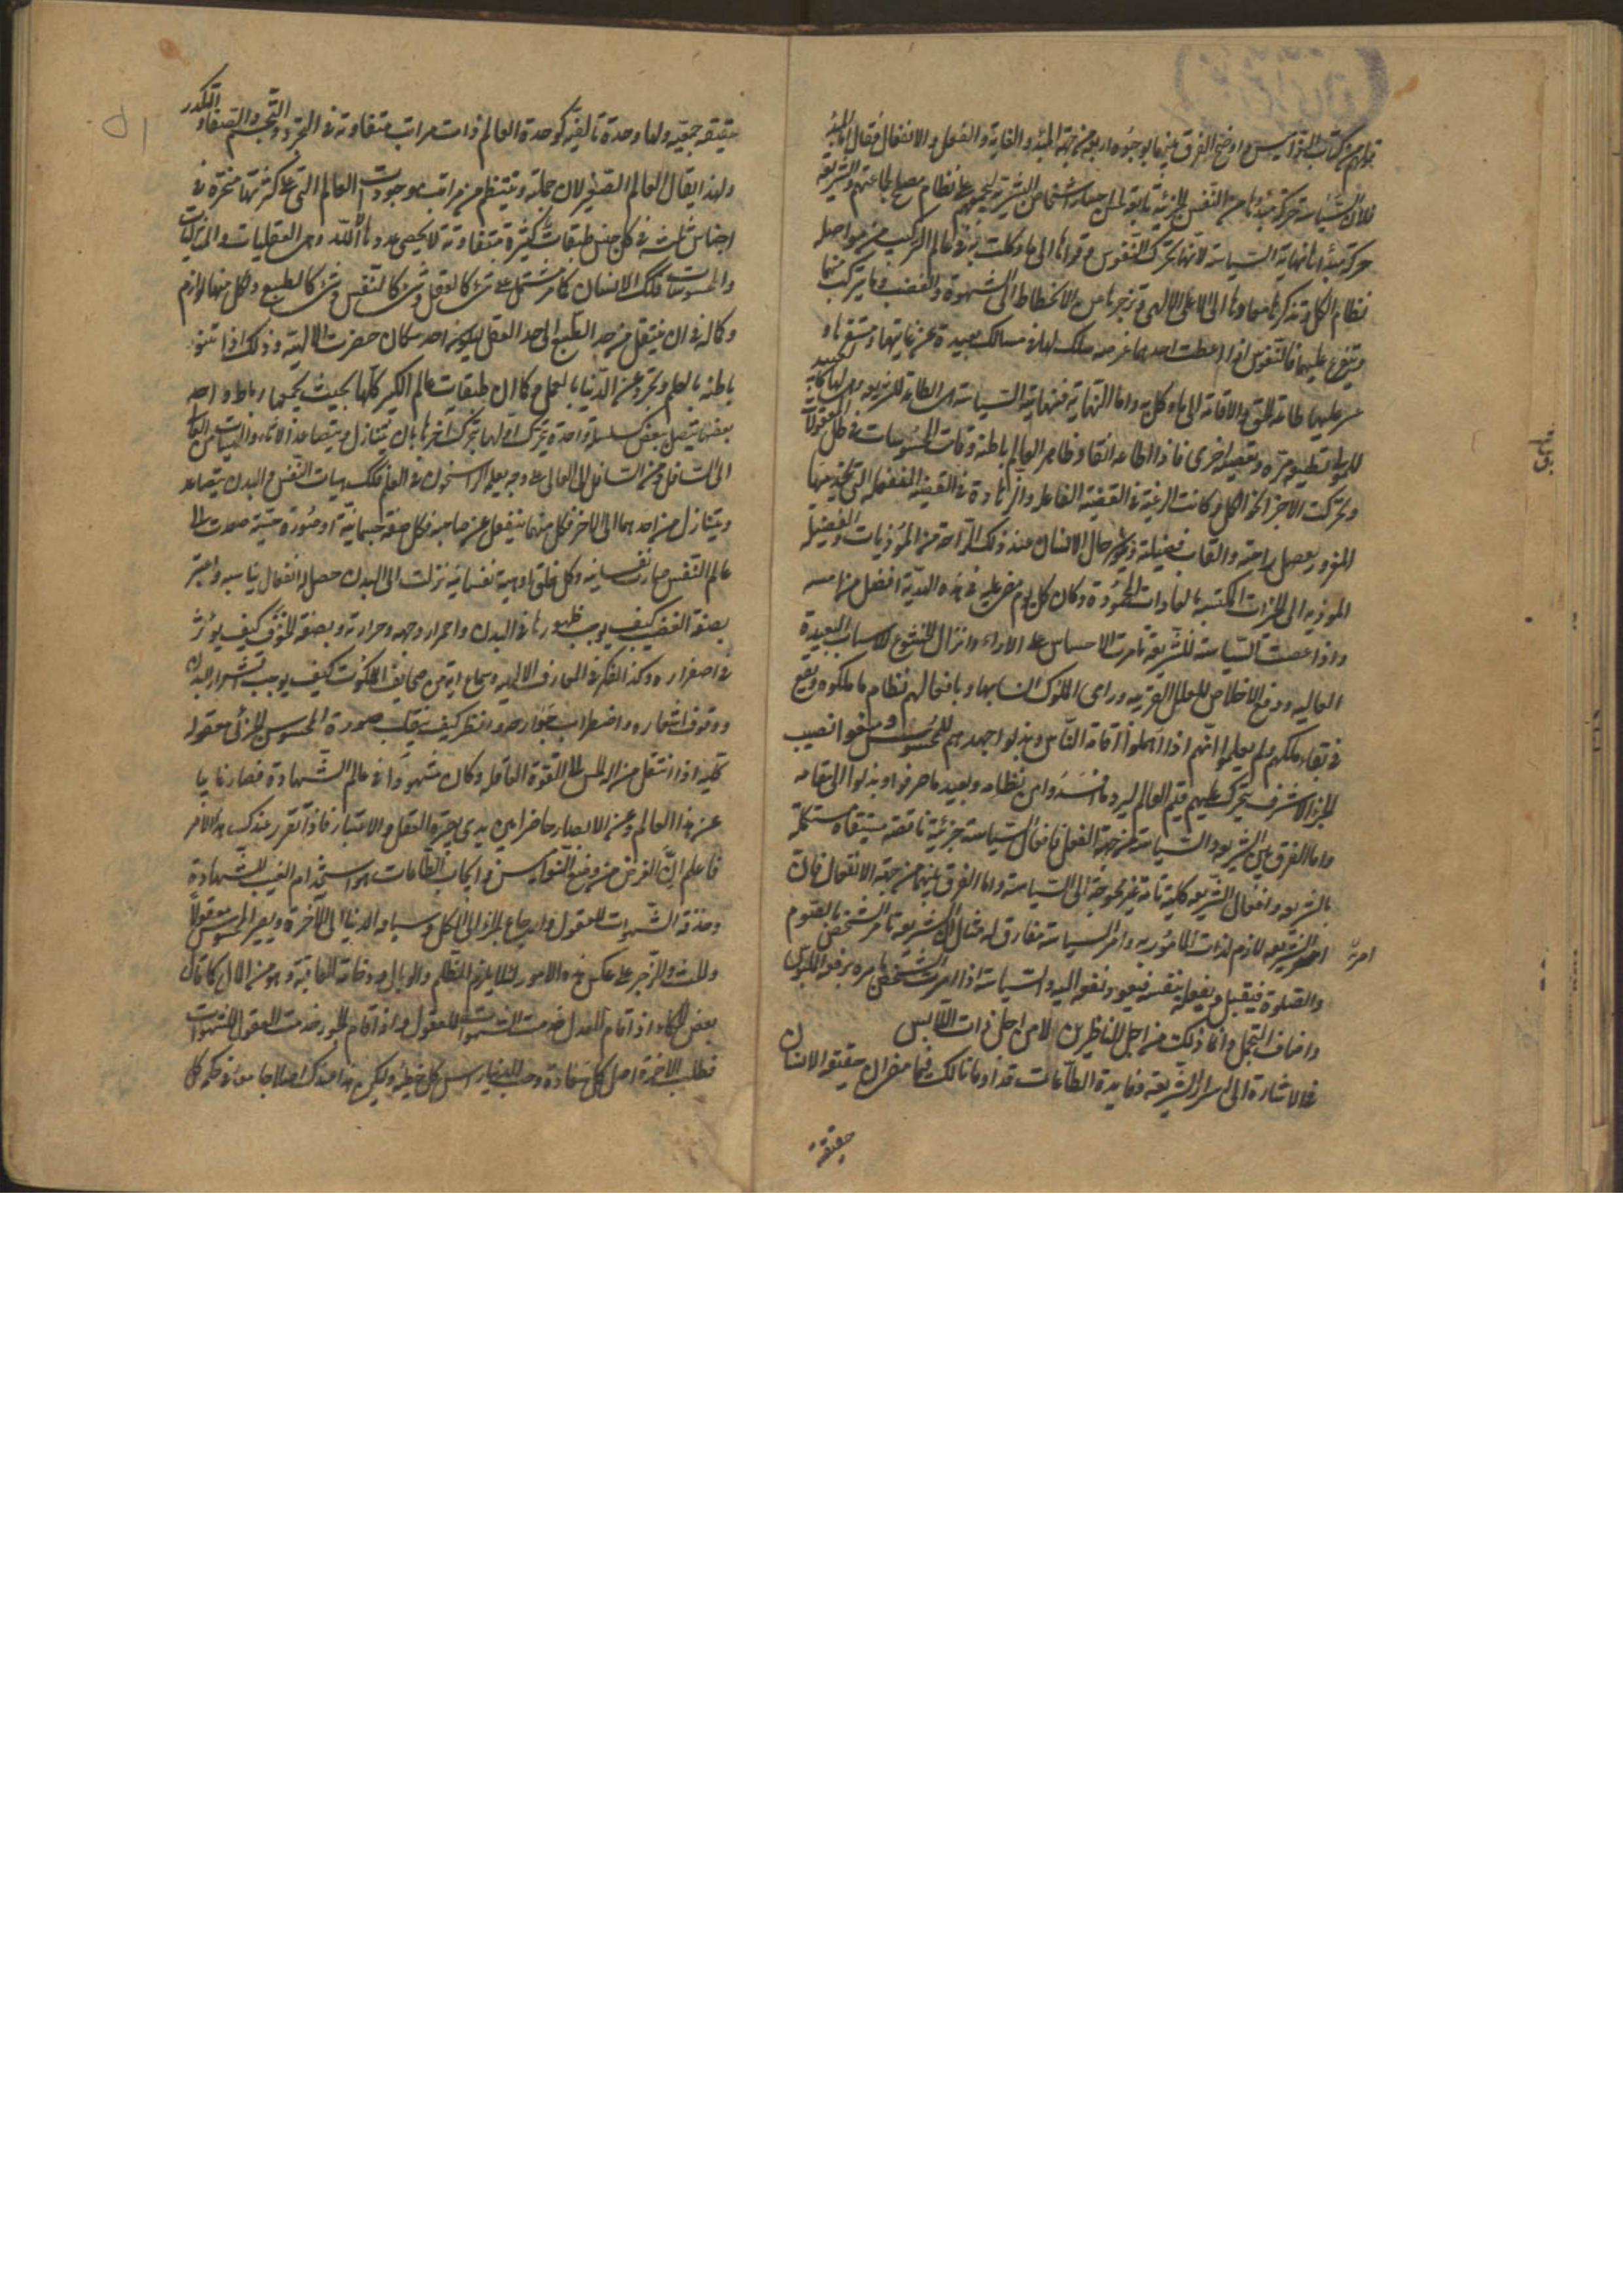 قوام من كتاب النواميس واوضح الفرق بينهما بوجوه اربعة من جهة المبدء والغاية والفعل والانفعال فقال اما المبدء
فلان السياسة حركة مبدئها من النفس الجزئية تابعة لحسن اختيار الاشخاص البشرية ليجمعهم على نظام مصلح لجماعتهم والشريعة
حركة مبدأها نهاية السياسة لانها تحرك النفوس وقواها الى ما وكلت به في عالم التركيب من مواصلة
نظام الكل وتذكرها معادها الى العالم الاعلى الالهي وتزجرها من الانحطاط الى الشهوة والغضب وما يتركب منهما
ويتفرع عليهما فالنفوس اذا اعطت احدهما غرضه سلك لها في مسالك بعيدة عن غايتها ومستقرها و
عسر عليها طاعة الحق والاقامة الى ما وكلت به واما النهاية فنهاية السياسة هي الطاعة للشريعة وهي لها كالعبد
للمولى تطيعه مرة وتعصيه اخرى فاذا اطاعته انقاد ظاهر العالم باطنه وقامت المحسوسات في ظل المعقولات
وتحركت الاجزاء نحو الكل وكانت الرغبة في القنية الفاعلة والزهادة في القنية المنفعلة التي تخدمها
المغرور بعصل راحته والقات فضيلة ويكون حال الانسان عند ذلك الراحة من المؤذيات والفضيلة
المؤدية الى الخيرات المكتسبة بالعادات المحمودة وكان كل يوم يمر عليه في هذه الدنيا افضل من امسه
واذا عصت السياسة للشريعة تامرت الاحساس على الاراء وزال الخشوع للاسباب البعيدة
العالية ووقع الاخلاص للعلل القريبة وراى الملوك ان بها وبافعالهم نظام ما ملكوه ويقع
في بقاء ملكهم ولم يعلموا انهم اذا اهملوا اقامة الناس وبذلوا جهدهم للمحسوس ومنعوا نصيب
الجزء الاشرف يتحرك عليهم قيم العالم ليرد ما افسدوا من نظامه ويعيد ما حرفوا وبدلوا الى مقامه
واما الفرق بين الشريعة والسياسة من جهة الفعل فافعال السياسة جزئية ناقصة مستبقاة مستكملة
بالشريعة وافعال الشريعة كلية تامة غير محوجة الى السياسة واما الفرق بينهما من جهة الانفعال فان
امر الشريعة لازم لذات المامور به وامر السياسة مفارق له مثال ان الشريعة تامر الشخص بالصوم
امر
والصلوة فيقبل ويفعله بنفسه فيعود نفعه اليه والسياسة اذا امرت الشخص تامره برفعة الملبوس
واضاف التجمل وانما ذلك من اجل الناظرين لا من اجل ذات اللابس
فالاشارة الى اسرار الشريعة وفايدة الطاعات قد اومانا لك فيما مر ان حقيقة الانسان
حقيقة
حقيقة جمعية ولها وحدة تاليفية كوحدة العالم ذات مراتب متفاوتة في التجرد والتجسم والصفاء والتكدر
ولهذا يقال العالم الصغير لان جملته ينتظم من مراتب موجودات العالم التي على كثرتها منحصرة في
اجناس ثلثة في كل جنس طبقات كثيرة متفاوتة لا يحصى عددها الا الله وهي العقليات والمثاليات
والمحسوسات فلك الانسان كما مر مشتمل على شيء كالعقل وشيء كالنفس وشيء كالطبع ولكل منها لوازم
وكماله في ان ينتقل من حد الطبع الى حد العقل ليكون احد سكان حضرت الالهية وذلك اذا تنور
باطنه بالعلم وتجرد عن الدنيا بالعمل وكما ان طبقات عالم الكبير كلها بحيث يجمعها رباط واحد
بعضها يتصل ببعض كسلسلة واحدة يتحرك اولها بتحرك اخرها بان يتنازل ويتصاعد الاثار والهيئات من العالي
الى السافل ومن السافل الى العالي على وجه يعلمه الراسخون في العلم فلك هيئات النفس والبدن يتصاعد
ويتنازل من احدهما الى الاخر فكل منهما ينفعل عن صاحبه فكل صفة جسمانية او صورة حسية صعدت الى
عالم النفس صارت نفسانية وكل خلق او هيئة نفسانية نزلت الى البدن حصل له انفعال يناسبه واعتبر
بصفة الغضب كيف يوجب ظهورها في البدن واحمرار وجهه وحرارته وبصفة الخوف كيف يؤثر
في اصفراره وكذا الفكر في المعارف الالهية وسماع اية من صحائف الملكوت كيف يوجب اقشعرار البدن
ووقوف اشعاره واضطراب جوارحه وانظر كيف ينقلب صورة المحسوس الجزئي معقولة
كلية اذا انتقل من الحس الى القوة العاقلة وكان مشهودا في عالم الشهادة فصار غايبا
عن هذا العالم وعن الابصار حاضرا بين يدي بصيرة العقل والاعتبار فاذا تقرر عندك هذا الامر
فاعلم ان الغرض من وضع النواميس وايجاب الطاعات هو استخدام الغيب الشهادة
وخدمة الشهوات العقول وارجاع الجزء الى الكل وسياقه الدنيا الى الآخرة ويصير المحسوس معقولا
والحث والزجر على عكس هذه الامور لئلا يلزم الظلم والوبال ووخامة العاقبة وسوء المال كما قال
بعض الحكماء اذا قام العدل خدمت الشهوات العقول واذا قام الجور خدمت العقول الشهوات
فطلب الاخرة اصل كل سعادة وحب الدنيا راس كل خطيئة وليكن هذا عندك اصلا جامعا في حكمة كل